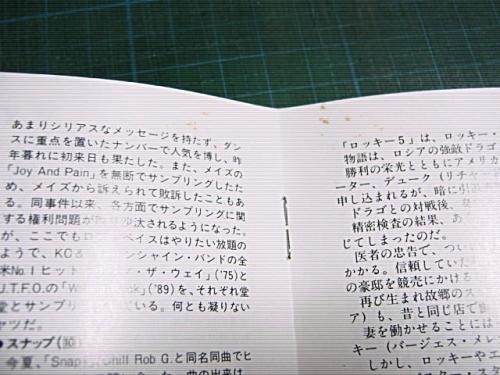 あまりシリアスなメッセージを持たず、ダン
スに重点を置いたナンバーで人気を博し、昨
年暮れに初来日も果たした。また、メイズの
「Joy And Pain」を無断でサンプリングしたた
め、メイズから訴えられて敗訴したこともあ
る。同事件以来、各方面でサンプリングに関
する権利問題が 沙汰されるようになった。
が、ここでもロ ベイスはやりたい放題の
ようで、KC& ンシャイン・バンドの全
米No.1ヒット ・ザ・ウェイ」('75)と
U.T.F.O.の「 」('89)を、それぞれ堂
堂とサンプリ ている。何とも凝りない
ヤツだ。
●スナップ
今夏、「Snap」、Chill Rob G.と同名同曲でヒ
「ロッキー5」は、ロッキー・
物語は、ロシアの強敵ドラゴ
勝利の栄光とともにアメリカ
ーター、デューク(リチャー
申し込まれるが、暗に引退
ドラゴとの対戦後、
精密検査の結果、あ
じてしまったのだ。
医者の忠告で、つい
かかる。信頼していた
の豪邸を競売にかける
再び生まれ故郷のス
ア)も、昔と同じ店で働
妻を働かせることには
キー(バージェス・メレ
しかし、ロッキーやエ